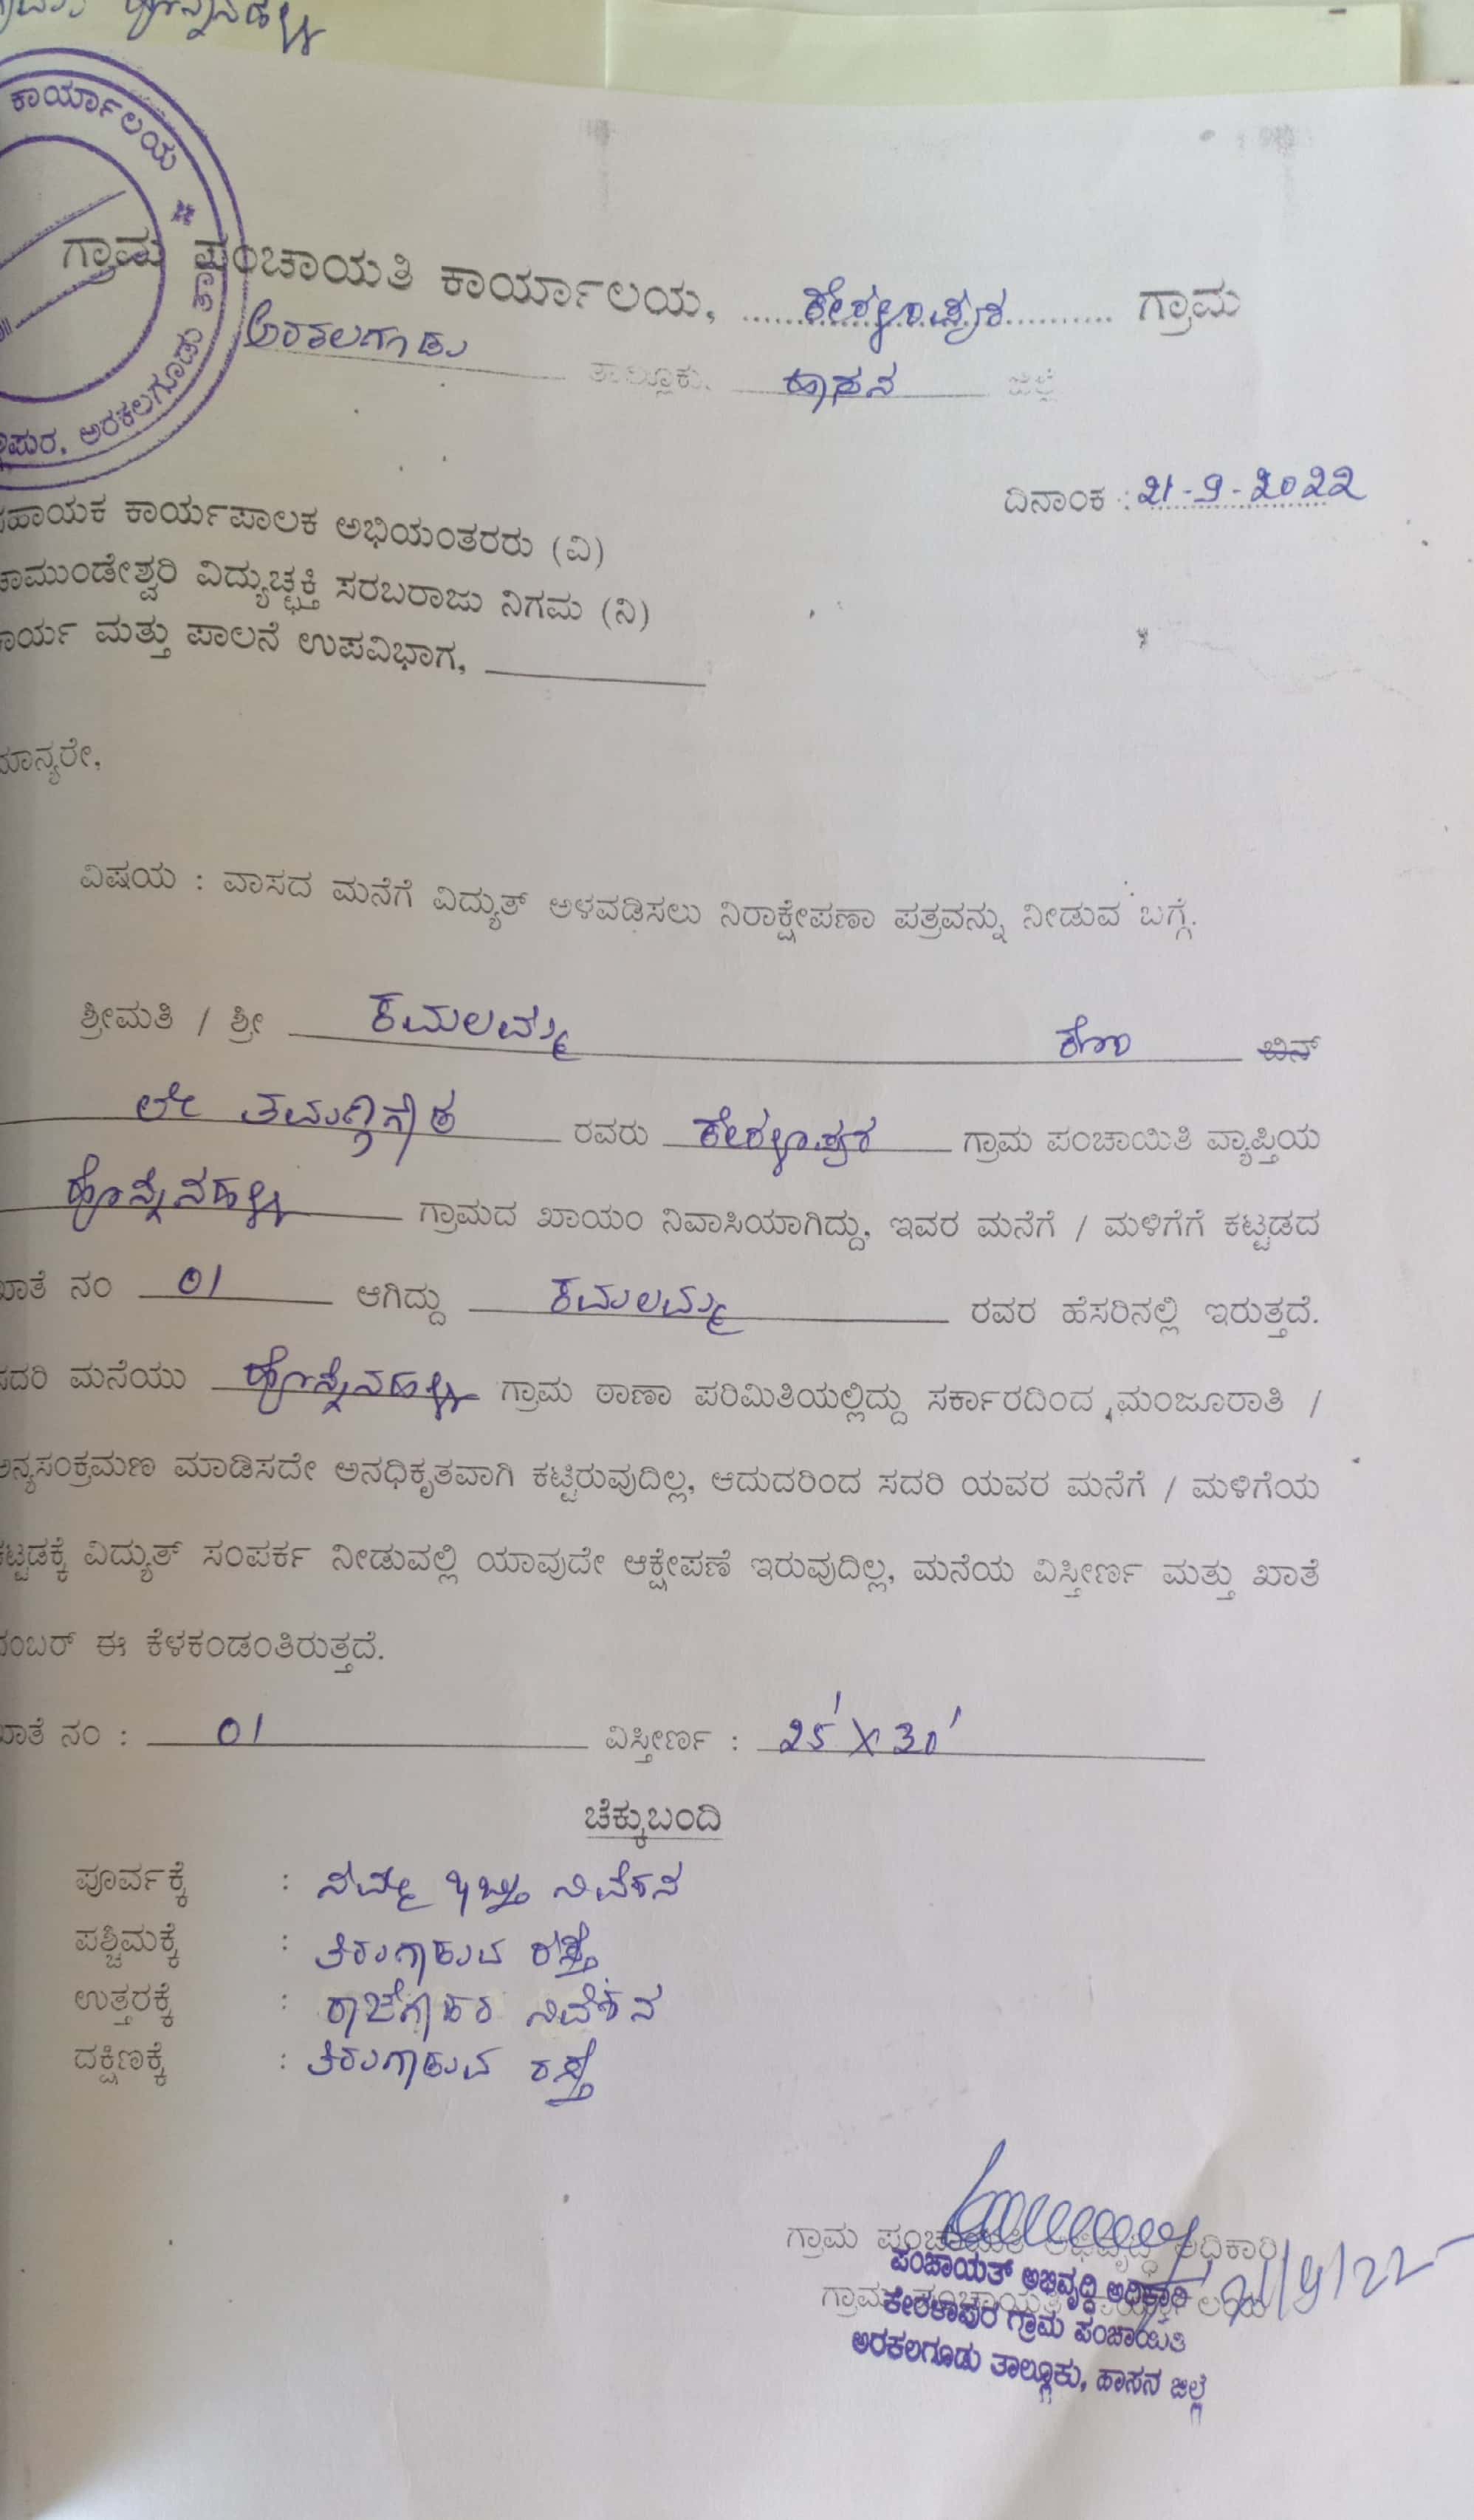 ಹೊನ್ನೇನಹಳ್ಳಿ
ಕಾರ್ಯಾಲಯ * ತಾ
ಪುರ, ಅರಕಲಗೂಡು
ಗ್ರಾಮ ಪಂಚಾಯತಿ ಕಾರ್ಯಾಲಯ, ಕೇರಳಾಪುರ ಗ್ರಾಮ
ಅರಕಲಗೂಡು ತಾಲ್ಲೂಕು. ಹಾಸನ ಜಿಲ್ಲೆ
ದಿನಾಂಕ : 21-9-2022
ಸಹಾಯಕ ಕಾರ್ಯಪಾಲಕ ಅಭಿಯಂತರರು (ವಿ)
ಚಾಮುಂಡೇಶ್ವರಿ ವಿದ್ಯುಚ್ಛಕ್ತಿ ಸರಬರಾಜು ನಿಗಮ (ನಿ)
ಕಾರ್ಯ ಮತ್ತು ಪಾಲನೆ ಉಪವಿಭಾಗ,
ಮಾನ್ಯರೇ,
ವಿಷಯ : ವಾಸದ ಮನೆಗೆ ವಿದ್ಯುತ್ ಅಳವಡಿಸಲು ನಿರಾಕ್ಷೇಪಣಾ ಪತ್ರವನ್ನು ನೀಡುವ ಬಗ್ಗೆ.
ಶ್ರೀಮತಿ / ಶ್ರೀ ಕಮಲಮ್ಮ ಕೋಂ ಬಿನ್
ಲೇ ತಮ್ಮಣ್ಣಗೌಡ ರವರು ಕೇರಳಾಪುರ ಗ್ರಾಮ ಪಂಚಾಯಿತಿ ವ್ಯಾಪ್ತಿಯ
ಹೊನ್ನೇನಹಳ್ಳಿ ಗ್ರಾಮದ ಖಾಯಂ ನಿವಾಸಿಯಾಗಿದ್ದು, ಇವರ ಮನೆಗೆ / ಮಳಿಗೆಗೆ ಕಟ್ಟಡದ
ಖಾತೆ ನಂ 01 ಆಗಿದ್ದು ಕಮಲಮ್ಮ ರವರ ಹೆಸರಿನಲ್ಲಿ ಇರುತ್ತದೆ.
ಸದರಿ ಮನೆಯು ಹೊನ್ನೇನಹಳ್ಳಿ ಗ್ರಾಮ ಠಾಣಾ ಪರಿಮಿತಿಯಲ್ಲಿದ್ದು ಸರ್ಕಾರದಿಂದ ಮಂಜೂರಾತಿ /
ಅನ್ಯಸಂಕ್ರಮಣ ಮಾಡಿಸದೇ ಅನಧಿಕೃತವಾಗಿ ಕಟ್ಟಿರುವುದಿಲ್ಲ, ಆದುದರಿಂದ ಸದರಿ ಯವರ ಮನೆಗೆ / ಮಳಿಗೆಯ
ಕಟ್ಟಡಕ್ಕೆ ವಿದ್ಯುತ್ ಸಂಪರ್ಕ ನೀಡುವಲ್ಲಿ ಯಾವುದೇ ಆಕ್ಷೇಪಣೆ ಇರುವುದಿಲ್ಲ, ಮನೆಯ ವಿಸ್ತೀರ್ಣ ಮತ್ತು ಖಾತೆ
ನಂಬರ್ ಈ ಕೆಳಕಂಡಂತಿರುತ್ತದೆ.
ಖಾತೆ ನಂ : 01 ವಿಸ್ತೀರ್ಣ : 25' X 30'
ಚೆಕ್ಕುಬಂದಿ
ಪೂರ್ವಕ್ಕೆ : ನಿವೇಶನ
ಪಶ್ಚಿಮಕ್ಕೆ : ತಿರುಗಾಡುವ ರಸ್ತೆ
ಉತ್ತರಕ್ಕೆ : ನಿವೇಶನ
ದಕ್ಷಿಣಕ್ಕೆ : ತಿರುಗಾಡುವ ರಸ್ತೆ
ಗ್ರಾಮ ಪಂಚಾಯತಿ ಅಭಿವೃದ್ಧಿ ಅಧಿಕಾರಿ
ಗ್ರಾಮ ಪಂಚಾಯತಿ ಕಾರ್ಯಾಲಯ
ಪಂಚಾಯತ್ ಅಭಿವೃದ್ಧಿ ಅಧಿಕಾರಿ
ಕೇರಳಾಪುರ ಗ್ರಾಮ ಪಂಚಾಯಿತಿ
ಅರಕಲಗೂಡು ತಾಲ್ಲೂಕು, ಹಾಸನ ಜಿಲ್ಲೆ